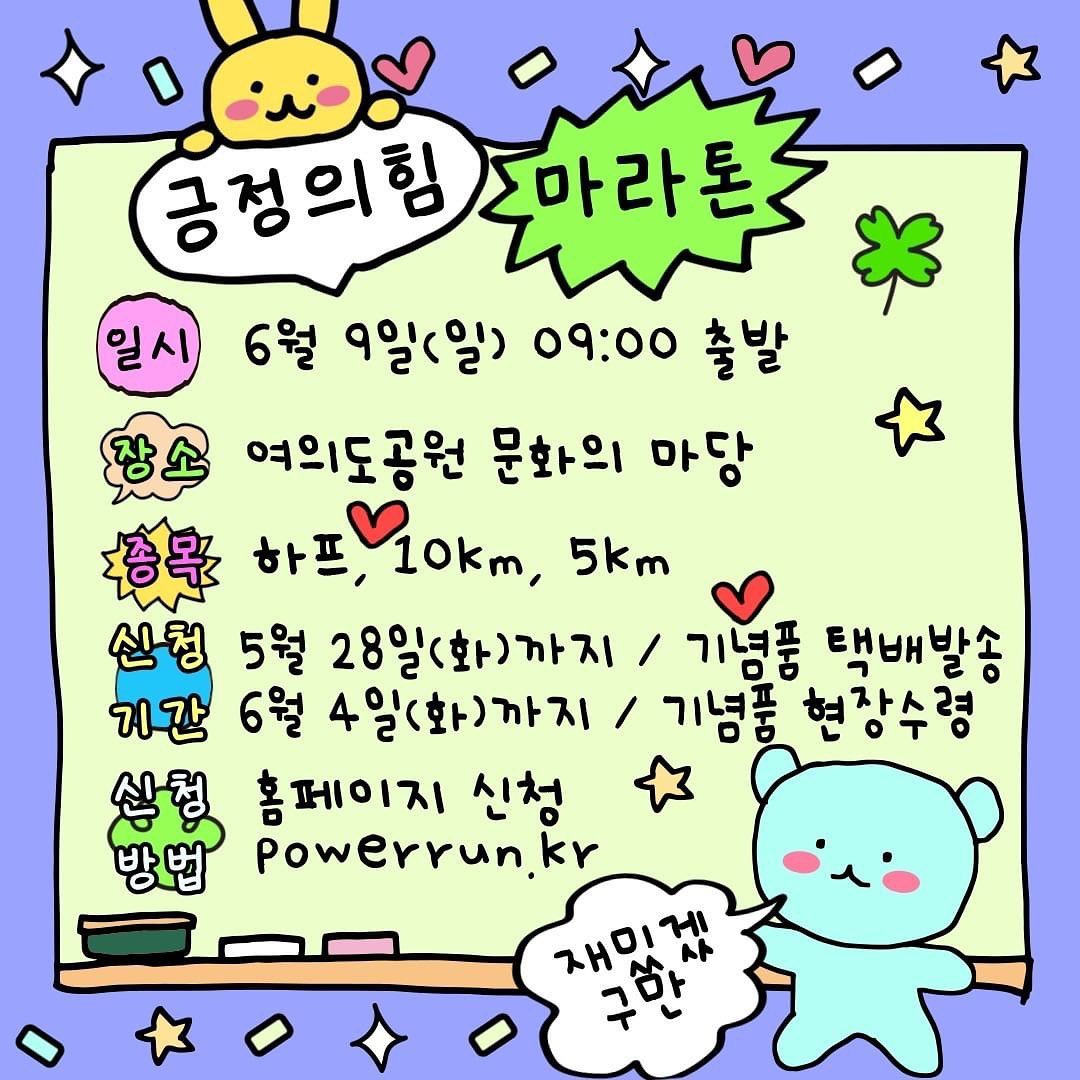 긍정의힘 마라톤
일시 6월 9일(일) 09:00 출발
장소 여의도공원 문화의 마당
종목 하프, 10km, 5km
신청 5월 28일(화)까지 / 기념품 택배발송
기간 6월 4일(화)까지 / 기념품 현장수령
신청 홈페이지 신청
방법 powerrun.kr
재밌겠
구만